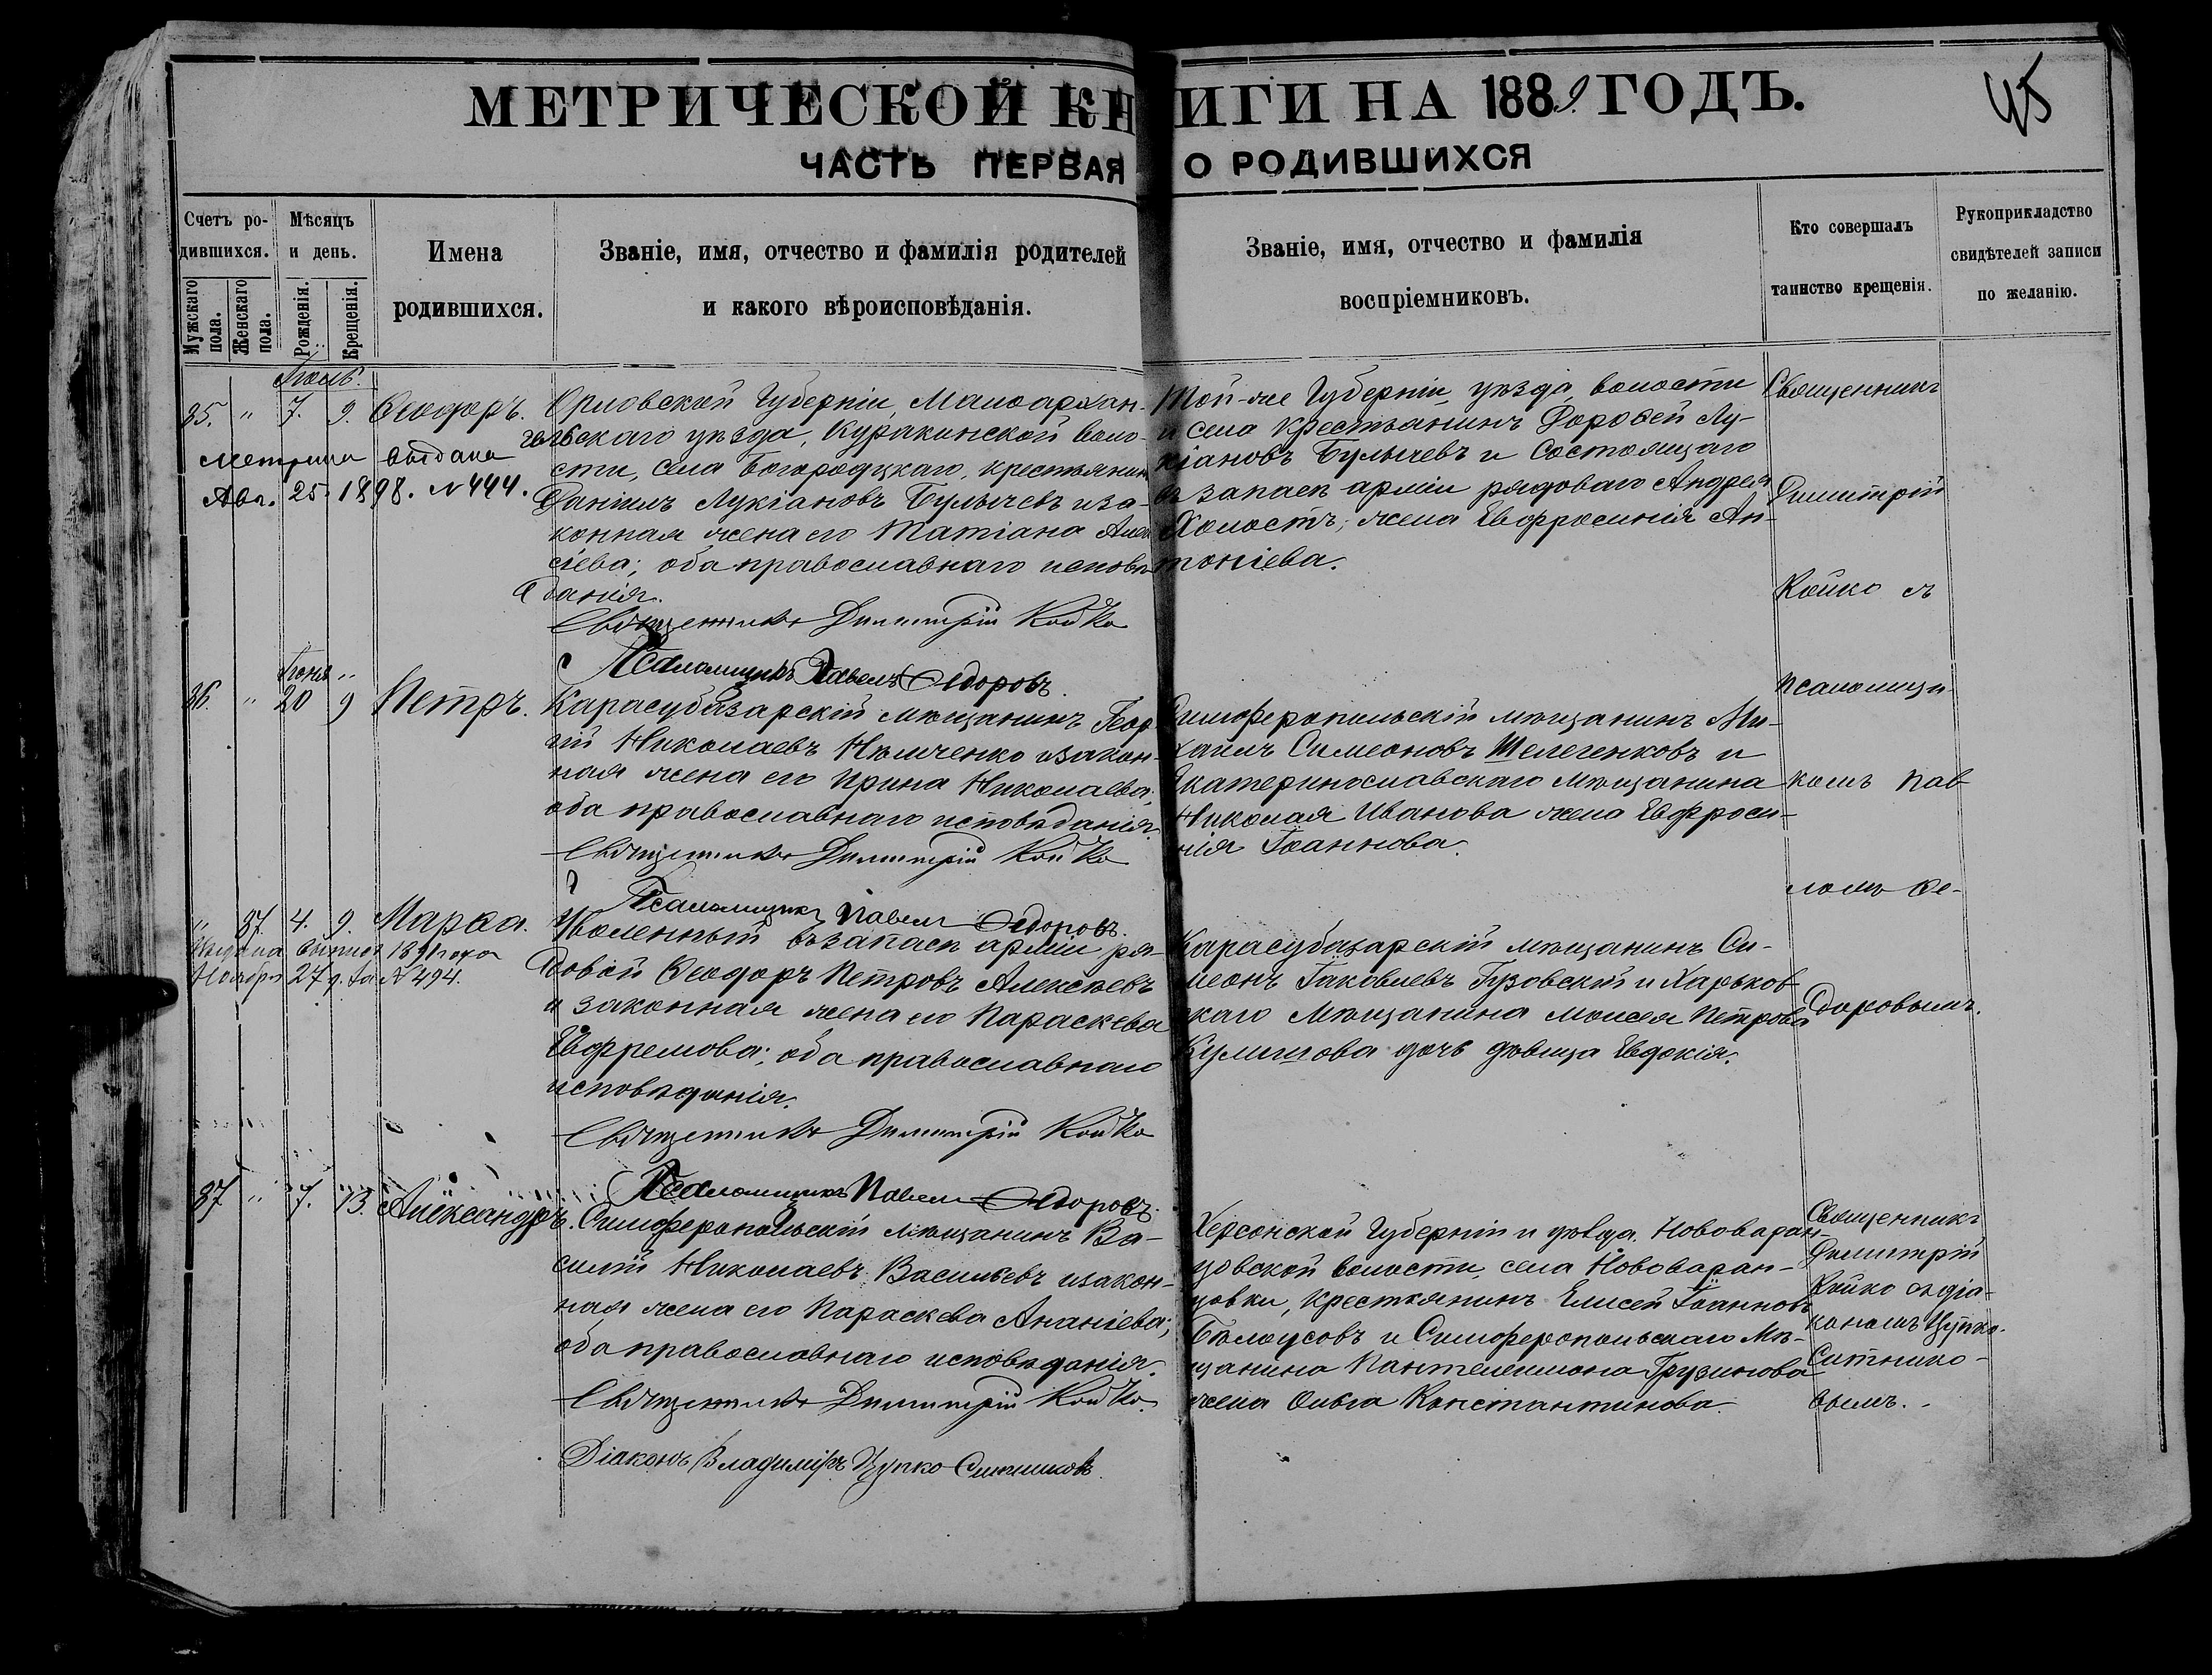 МЕТРИЧЕСКОЙ КНИГИ НА 1889 ГОДЪ.
45
ЧАСТЬ ПЕРВАЯ О РОДИВШИХСЯ
Счетъ родившихся.
Мужскаго пола.
Женскаго пола.
Мѣсяцъ и день.
Рожденія.
Крещенія.
Имена родившихся.
Званіе, имя, отчество и фамилія родителей
и какого вѣроисповѣданія.
Званіе, имя, отчество и фамилія
воспріемниковъ.
Кто совершалъ
таинство крещенія.
Рукоприкладство
свидѣтелей записи
по желанію.
Іюль.
35. " 7. 9. Ѳеодоръ.
Метрика выдана
Авг. 25. 1898. № 444.
Орловской Губерніи, Малоархан-
гельскаго уѣзда, Куракинской воло-
сти, села Богородцкаго, крестьянинъ
Даніилъ Лукіановъ Булычевъ и за-
конная жена его Татіана Алек
сіева; оба православнаго исповѣ
данія.
Священникъ Димитрій Койко
Псаломщикъ Павелъ Ѳедоровъ.
Той-же Губерніи, уѣзда, волости
и села крестьянинъ Дороѳей Лу-
кіановъ Булычевъ и состоящаго
въ запасѣ арміи рядоваго Андрея
Холостъ, жена Евфросинія Ан-
тоніева.
Священникъ
Димитрій
Койко съ
псаломщи-
комъ Пав
ломъ Ѳе-
доровымъ.
Іюня "
36. " 20 9 Петръ.
Карасубазарскій мѣщанинъ Геор
гій Николаевъ Нѣмченко и закон-
ная жена его Ирина Николаева;
оба православнаго исповѣданія.
Священникъ Димитрій Койко
Псаломщикъ Павелъ Ѳедоровъ.
Симферопольскій мѣщанинъ Ми-
хаилъ Симеоновъ Шелегенковъ и
Екатеринославскаго мѣщанина
Николая Иванова жена Евфроси-
нія Іоаннова.
" 37. 4. 9. Марѳа.
Выдана выпись 1891 года
Ноября 27 д. за № 494.
Уволенный въ запасъ арміи ря-
довой Ѳеодоръ Петровъ Алексѣевъ
и законная жена его Параскева
Евфремова; оба православнаго
исповѣданія.
Священникъ Димитрій Койко
Псаломщикъ Павелъ Ѳедоровъ.
Карасубазарскій мѣщанинъ Си-
меонъ Іаковлевъ Гузовскій и Харьков
скаго мѣщанина Моисея Петрова
Кулишова дочь дѣвица Евдокія.
37 " 7. 13. Александръ.
Симферопольскій мѣщанинъ Ва-
силій Николаевъ Васильевъ и закон-
ная жена его Параскева Ананіева;
оба православнаго исповѣданія.
Священникъ Димитрій Койко.
Діаконъ Владиміръ Цупко-Ситниковъ.
Херсонской Губерніи и уѣзда, Нововаран-
цовской волости, села Нововаран-
цовки, крестьянинъ Елисей Іоанновъ
Бѣлоусовъ и Симферопольскаго мѣ-
щанина Пантелеимона Грузинова
жена Ольга Константинова.
Священникъ
Димитрій
Койко съ діа-
кономъ Цупко-
Ситнико-
вымъ.